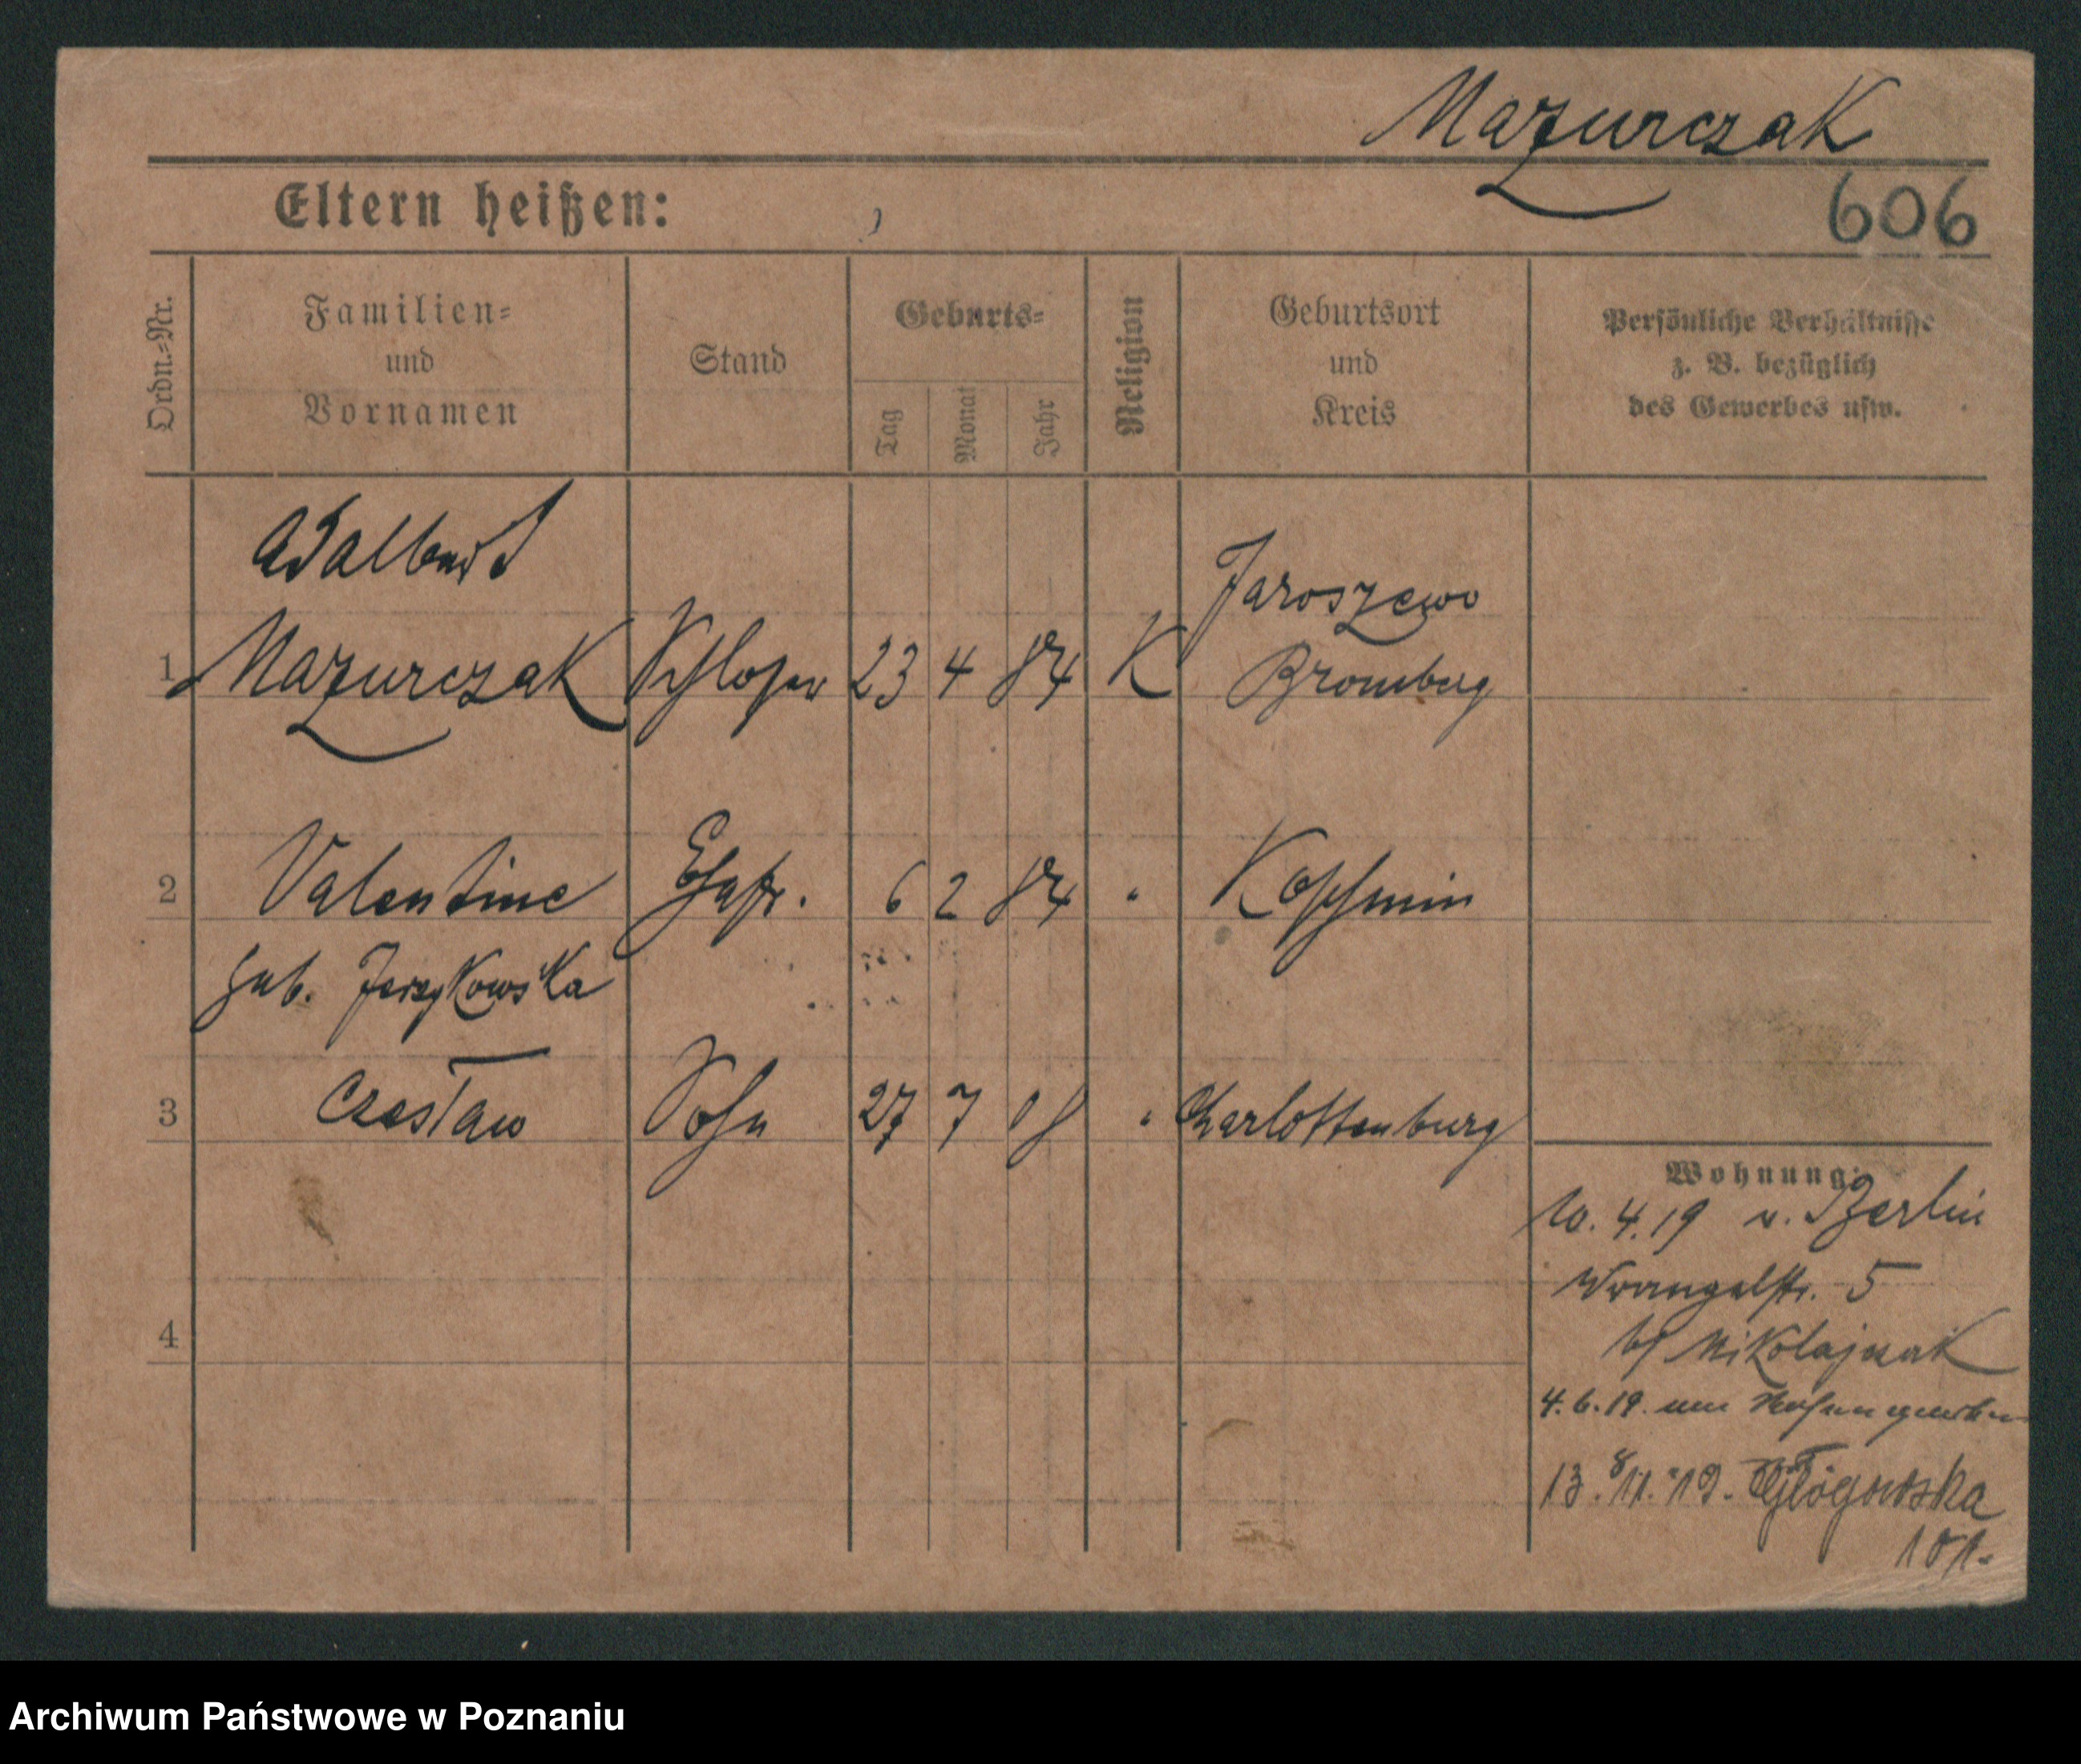 Mazurczak
606
Eltern heißen:
Ordn.-Nr.
Familien-
und
Vornamen
Stand
Geburts-
Tag
Monat
Jahr
Religion
Geburtsort
und
Kreis
Persönliche Verhältnisse
z. B. bezüglich
des Gewerbes usw.
Adalbert
Jaroszewo
1 Mazurczak Schlosser 23 4 84 K Bromberg
2 Valentine Ehefr. 6 2 84 " Koschmin
geb. Jerzykowska
3 Czesław Sohn 27 7 08 " Charlottenburg
Wohnung:
10. 4. 19 v. Berlin
Wrangelstr. 5
b/ Mikolajczak
4
4. 6. 19.
13. 11. 19. Głogowska
101.